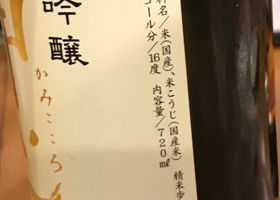 料名/米(国産)、米こうじ(国産米) 精米歩
コール分/16度 内容量/720ml
吟醸
かみこころ